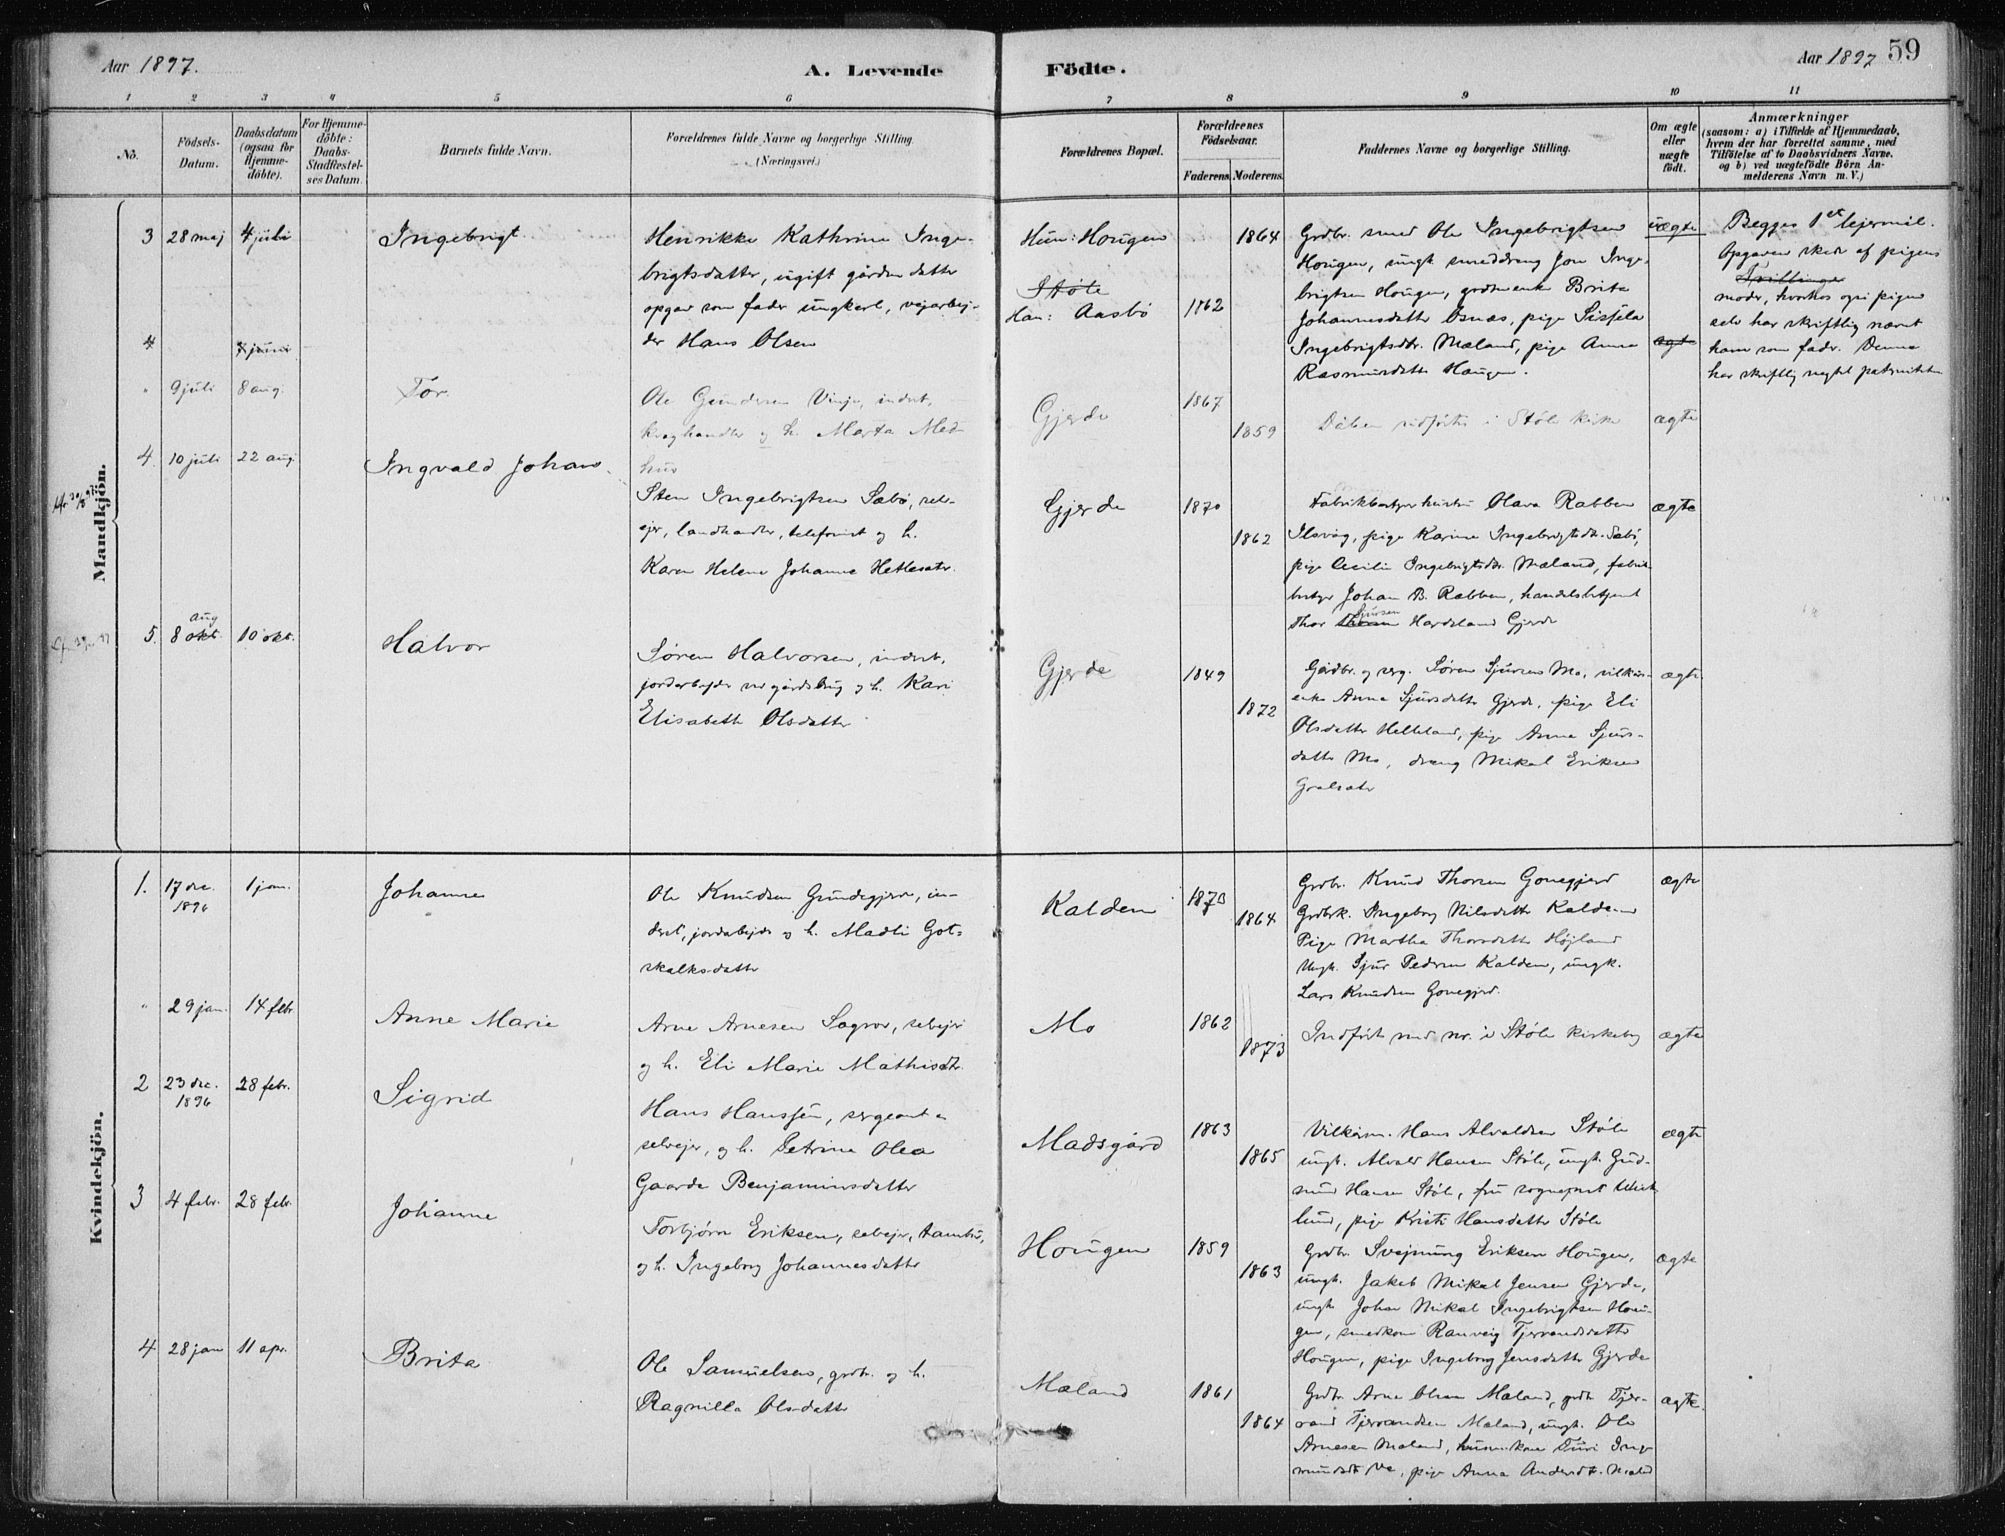 Aar 1897.
A. Levende
Födte.
Aar 1897
59
1 2 3 4 5 6 7 8 9 10 11
No.
Födsels-Datum.
Daabsdatum (ogsaa for Hjemme-döbte).
For Hjemme-döbte: Daabs-Stadfæstel-ses Datum.
Barnets fulde Navn.
Forældrenes fulde Navne og borgerlige Stilling. (Næringsvei.)
Forældrenes Bopæl.
Forældrenes Födselsaar.
Faderens. Moderens.
Faddernes Navne og borgerlige Stilling.
Om ægte eller uægte födt.
Anmærkninger
(saasom: a) i Tilfælde af Hjemmedaab,
hvem der har forrettet samme, med
Tilföielse af to Daabsvidners Navne,
og b) ved uægtefödte Börn An-
melderens Navn m. V.)
Mandkjön.
3 28 maj 4 juli Ingebrigt
Henrikke Kathrine Inge-
brigtsdatter, ugift gårdm datter
opgav som fader ungkarl, vejarbej-
der Hans Olsen
Hun: Hougen
Støle
Han: Aasbö
1864
1862
Grdbr. smed Ole Ingebrigtsen
Hougen, ungk. smeddreng Jon Inge-
brigtsen Hougen, grdm enke Brita
Johannesdatter Osnas, pige Sissela
Ingebrigtsdtr. Mæland, pige Anna
Rasmusdatter Hougen.
uægte
Begges 1ste lejermål.
Opgaven skede af pigens
Tvillinger
moder, hvorhos også pigen
selv har skriftlig nævnt
ham som fader. Denne
har skriftlig nægtet paternitet
4 juni ægte
" 9 juli 8 aug. Tor
Ole Gundersen Vinje, inderst,
kraghandler og h. Marta Med
hus
Gjerde
1867
1859
Dåben indført i Støle kirke
ægte
4. 10 juli 22 aug. Ingvald Johan
Sten Ingebrigtsen Sæbö, selv-
ejer, landhandler, telefonist og h.
Karen Helene Johanne Hetlesæter
Gjerde
1870
1862
Fabrikbestyrer hustru Olava Rabben
Ilsvåg, pige Karine Ingebrigtsdtr. Sæbö,
pige Cecilie Ingebrigtsdtr. Mæland, fabrik
bestyr Johan B. Rabben, handelsbetjent
Thor Sjursen Hardeland Gjerde
ægte
5. 8 okt. aug 10 okt. Halvor
Søren Halvorsen, inderst,
jordarbejder ved gårdsbrug og h. Kari
Elisabeth Olsdatter
Gjerde
1849
1872
Gårdbr. og serg. Søren Sjursen Mo, vilkårs-
enke Anna Sjursdatter Gjerde, pige Eli
Olsdatter Helleland, pige Anna Sjurs-
datter Mo, dreng Mikal Eriksen
ægte
Kvindekjön.
1. 17 dec. 1896 1 jan. Johanne
Ole Knudsen Grindegjerd, in-
derst, jordarbejder og h. Madli Got-
skalksdatter
Kalden
1870
1864
Grdbr. Knud Thorsen Gonegjerd
Grdbrk. Ingeborg Nilsdatter Kalden
Pige Martha Thorsdatter Højland
Ungk. Sjur Pedersen Kalden, ungk.
Lars Knudsen Gonegjerd.
ægte
" 29 jan. 14 febr. Anne Marie
Arne Arnesen Sagvor, selvejer
og h. Eli Marie Mathisdtr.
Mo
1862
1873
Indført med nr. i Støle kirkebog
ægte
2 23 dec. 1896 28 febr. Sigrid
Hans Hanssen, sergeant &
selvejer, og h. Petrine Olea
Gaarde Benjaminsdatter
Madsgård
1863
1865
Vilkårsm. Hans Alvaldsen Støle
ungk. Alvald Hansen Støle, ungk. Gud-
mund Hansen Støle, fru sogneprest
lund, pige Kristi Hansdatter Støle
ægte
3 4 febr. 28 febr. Johanne
Torbjørn Eriksen, selvejer,
og h. Ingeborg Johannesdatter
Hougen
1859
1863
Grdbr. Svejnung Eriksen Hougen,
ungk. Jakob Mikal Jensen Gjerde,
ungk. Johan Mikal Ingebrigtsen Hou-
gen, smedkone Ranveig Tjerandsdatter
Hougen, pige Ingeborg Jensdatter Gjerde
ægte
4 28 jan 11 apr. Brita
Ole Samuelsen, grdbr. og h.
Ragnilla Olsdatter
Mæland
1861
1864
Grdbr. Arne Olsen Mæland, grdbr. Tjer-
rand Tjerandsen Mæland, ungk. Ole
Arnesen Mæland, husm. kone Turi Ing-
mundsdtr. Mo, pige Anna Andersdtr. Mæland
ægte.